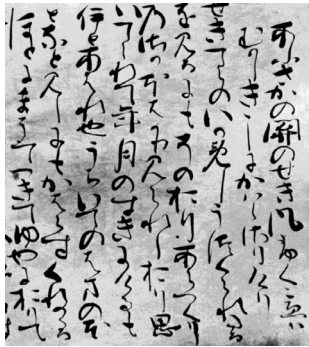 あふさかの関のせき風ふくこゑは
むかしきゝしにかはらさりけり
せきてらのいかめしうつくられたる
を見るにもそのおりあらつくり
の御かほ見られしおり思
いてられて年月のすきにけるも
いとあはれ也うちいてのはまのほ
となと見しにもかはらすくれかゝる
ほとにまうてつきてゆやにおりて